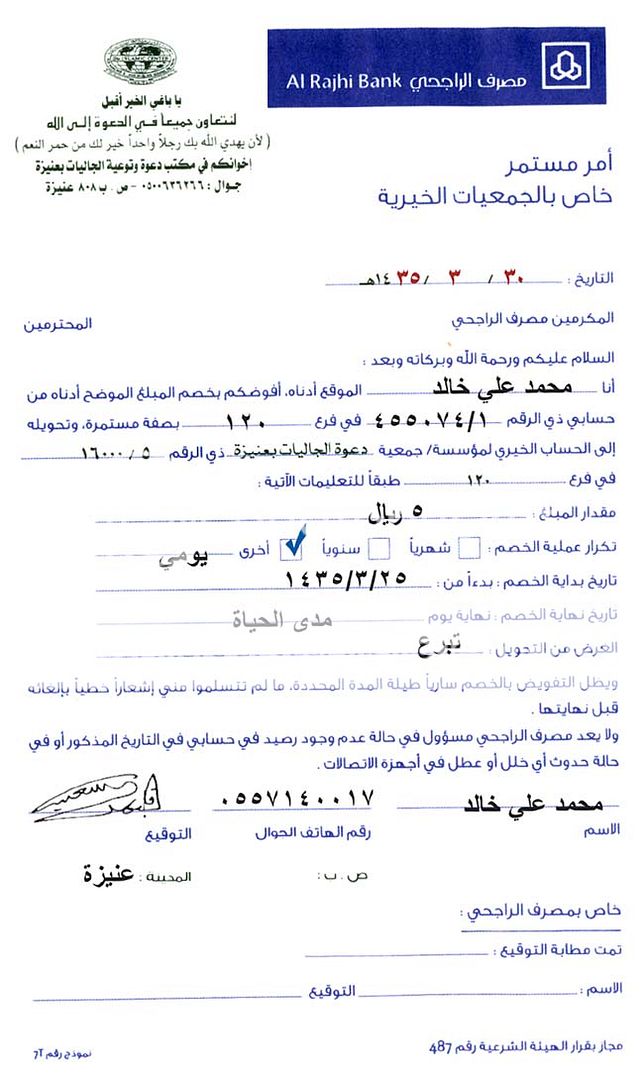 مصرف الراجحي Al Rajhi Bank
ISLAMIC CENTER
يا باغي الخير أقبل
لنتعاون جميعاً في الدعوة إلى الله
( لأن يهدي الله بك رجلاً واحداً خير لك من حمر النعم )
إخوانكم في مكتب دعوة وتوعية الجاليات بعنيزة
جوال : ٠٥٠٠٦٣٦٢٦٦ - ص . ب ٨٠٨ عنيزة
أمر مستمر
خاص بالجمعيات الخيرية
التاريخ : ٣٠ / ٣ / ١٤٣٥هـ
المكرمين مصرف الراجحي المحترمين
السلام عليكم ورحمة الله وبركاته وبعد :
أنا محمد علي خالد الموقع أدناه، أفوضكم بخصم المبلغ الموضح أدناه من
حسابي ذي الرقم ٤٥٥٠٧٤/١ في فرع ١٢٠ بصفة مستمرة، وتحويله
إلى الحساب الخيري لمؤسسة/ جمعية دعوة الجاليات بعنيزة ذي الرقم ٥ / ١٦٠٠٠
في فرع ١٢٠ طبقاً للتعليمات الآتية :
مقدار المبلغ : ٥ ريال
تكرار عملية الخصم : شهرياً سنوياً أخرى يومي
تاريخ بداية الخصم : بدءاً من : ١٤٣٥/٣/٢٥
تاريخ نهاية الخصم : نهاية يوم مدى الحياة
الغرض من التحويل : تبرع
ويظل التفويض بالخصم سارياً طيلة المدة المحددة، ما لم تتسلموا مني إشعاراً خطياً بإلغائه
قبل نهايتها .
ولا يعد مصرف الراجحي مسؤول في حالة عدم وجود رصيد في حسابي في التاريخ المذكور أو في
حالة حدوث أي خلل أو عطل في أجهزة الاتصالات .
محمد علي خالد ٠٥٥٧١٤٠٠١٧
الاسم رقم الهاتف الجوال التوقيع
ص . ب : المدينة : عنيزة
خاص بمصرف الراجحي :
تمت مطابة التوقيع :
الاسم : التوقيع
مجاز بقرار الهيئة الشرعية رقم 487 نموذج رقم 7T